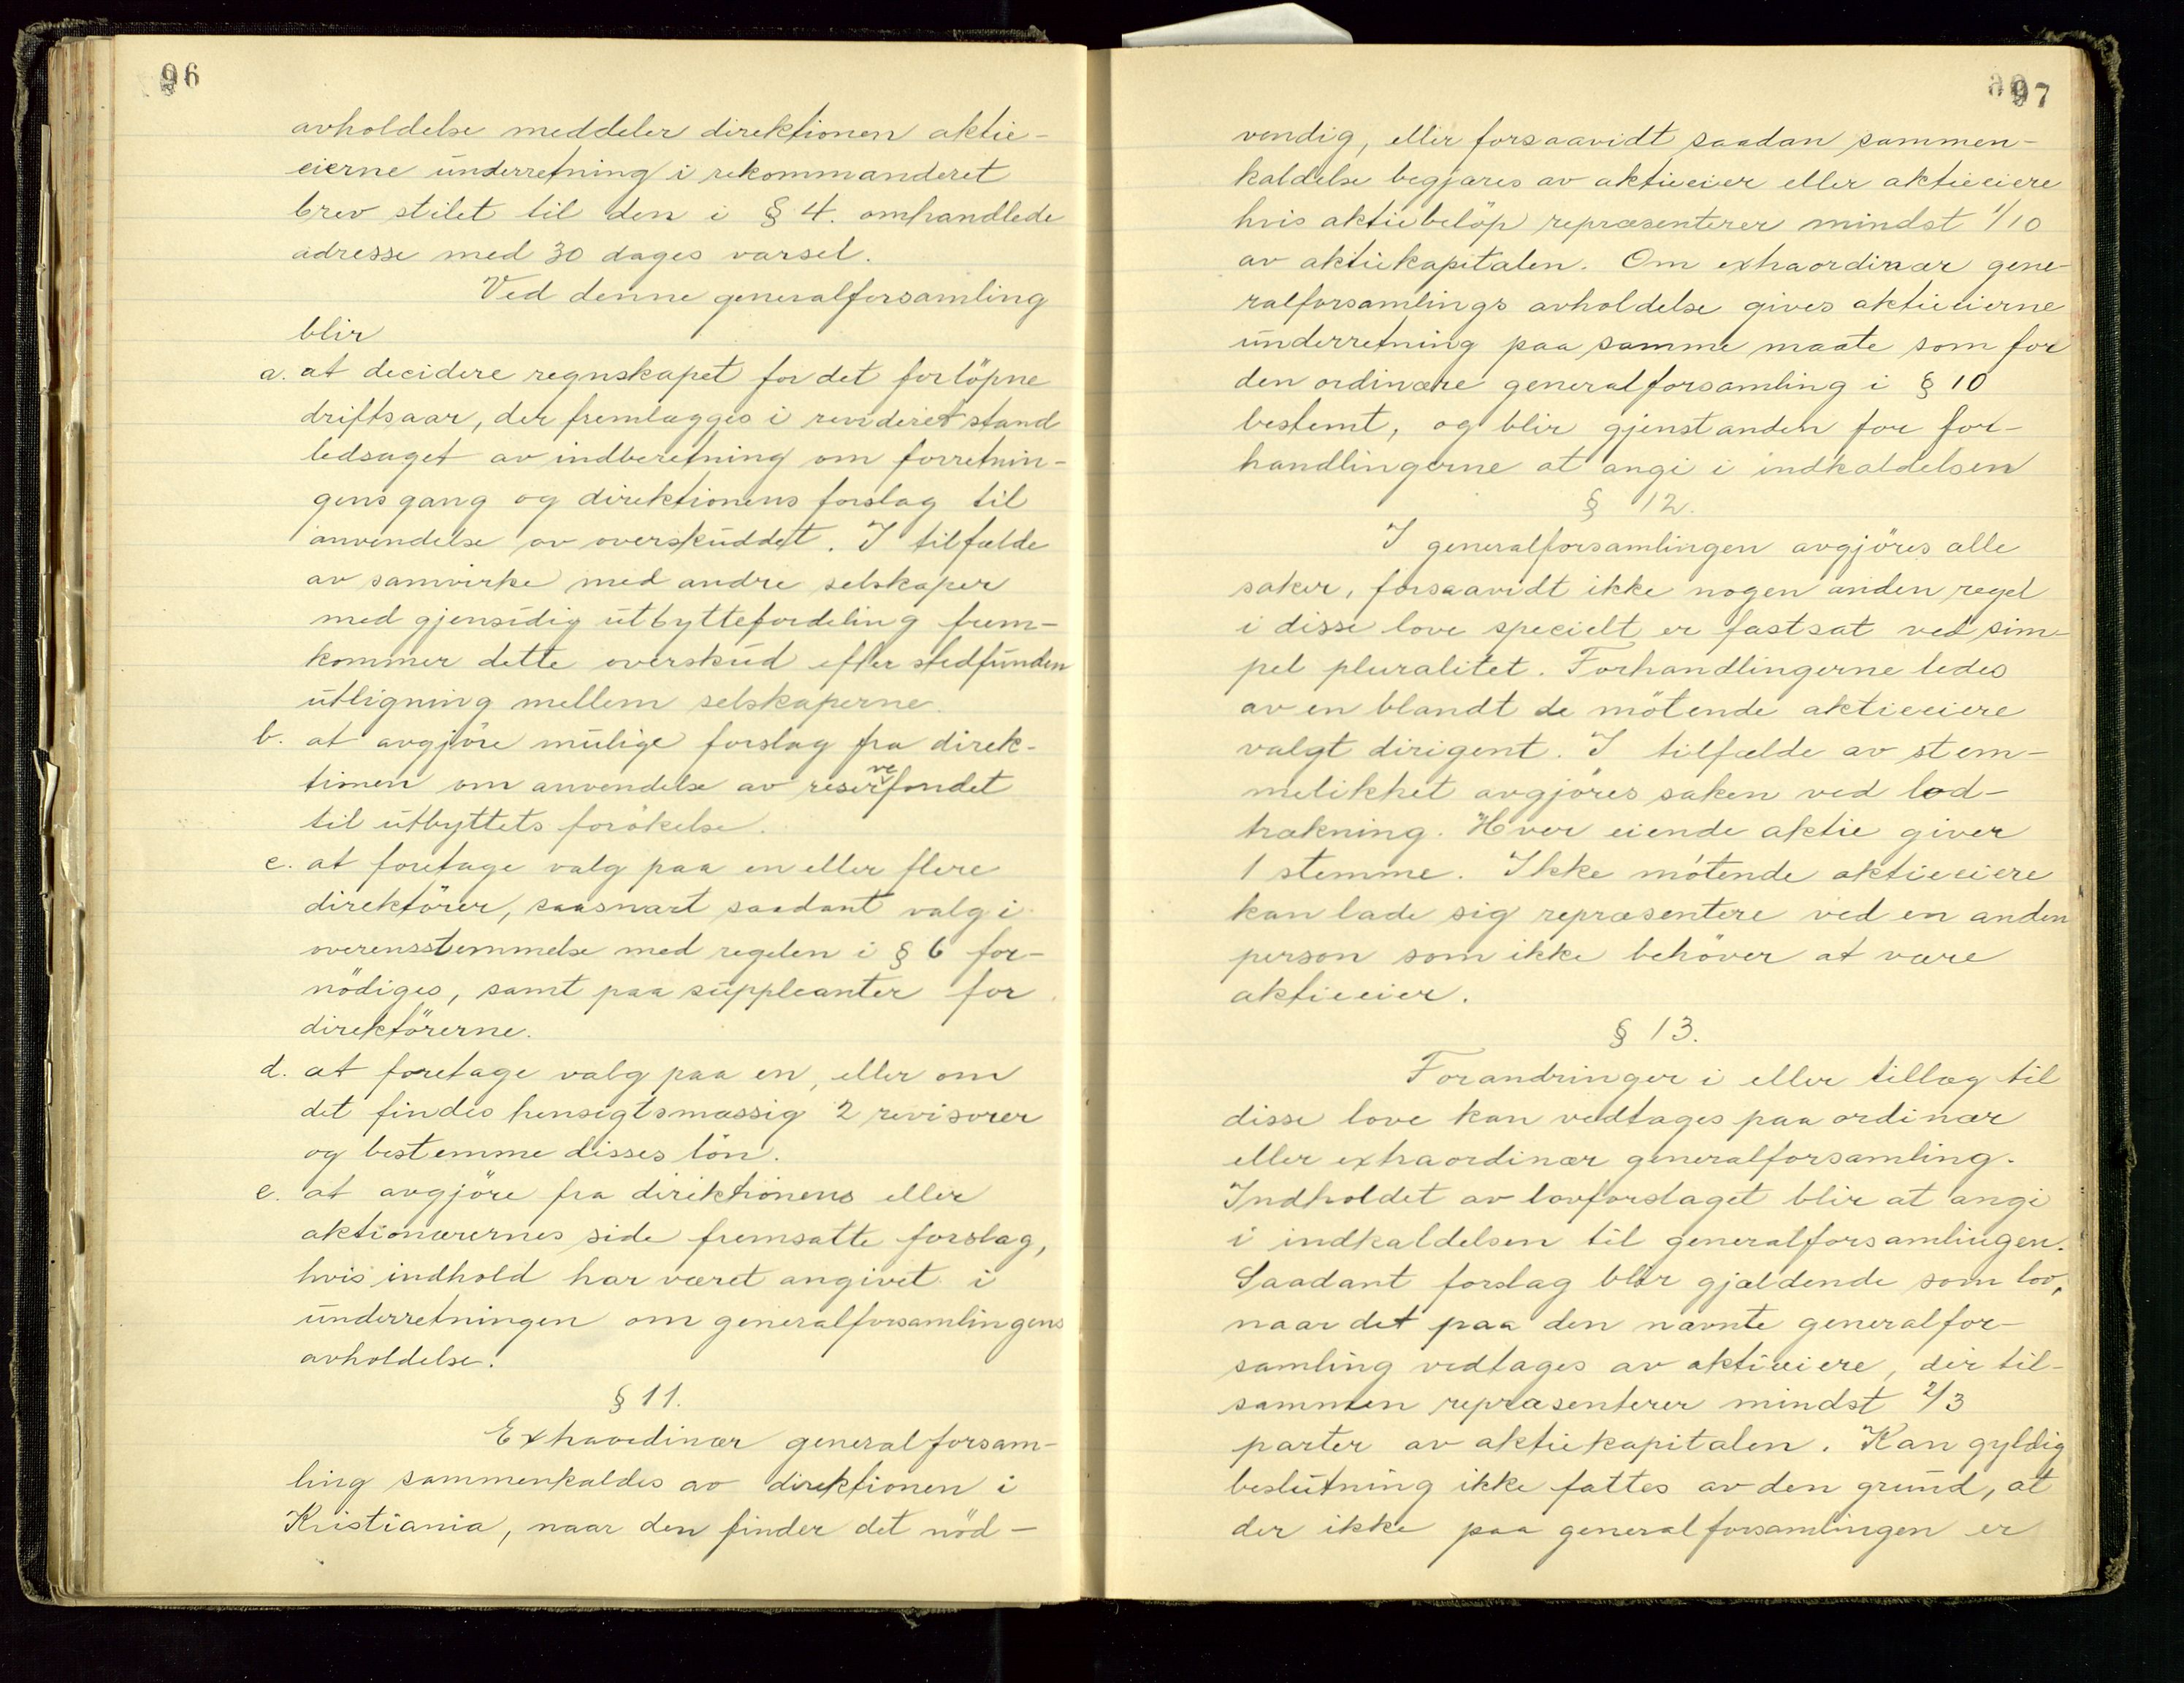 96
avholdelse meddeler direktionen aktie-
eierne underretning i rekommanderet
brev stilet til den i § 4. omhandlede
adresse med 30 dages varsel.
Ved denne generalforsamling
blir
a. at decidere regnskapet for det forlöpne
driftsaar, der fremlægges i revideret stand
ledsaget av indberetning om forretnin-
gens gang og direktionens forslag til
anvendelse av overskuddet. I tilfælde
av samvirke med andre selskaper
med gjensidig utbyttefordeling frem-
kommer dette overskud efter stedfunden
utligning mellem selskaperne.
b. at avgjöre mulige forslag fra direk-
tionen om anvendelse av reservefondet
til utbyttets forökelse.
c. at foretage valg paa en eller flere
direktörer, saasnart saadant valg i
overensstemmelse med regelen i § 6 for-
nödiges, samt paa suppleanter for
direktörerne.
d. at foretage valg paa en, eller om
det findes hensigtsmæssig 2 revisorer
og bestemme disses lön.
e. at avgjöre fra direktionens eller
aktionærernes side fremsatte forslag,
hvis indhold har været angivet i
underretningen om generalforsamlingens
avholdelse.
§ 11.
Extraordinær generalforsam-
ling sammenkaldes av direktionen i
Kristiania, naar den finder det nöd-
97
vendig, eller forsaavidt saadan sammen-
kaldelse begjæres av aktieeier eller aktieeiere
hvis aktiebelöp repræsenterer mindst 1/10
av aktiekapitalen. Om extraordinær gene-
ralforsamlings avholdelse gives aktieeierne
underretning paa samme maate som for
den ordinære generalforsamling i § 10
bestemt, og blir gjenstanden for for-
handlingerne at angi i indkaldelsen
§ 12.
I generalforsamlingen avgjöres alle
saker, forsaavidt ikke nogen anden regel
i disse love specielt er fastsat ved sim-
pel pluralitet. Forhandlingerne ledes
av en blandt de mötende aktieeiere
valgt dirigent. I tilfælde av stem-
melikhet avgjöres saken ved lod-
trækning. Hver eiende aktie giver
1 stemme. Ikke mötende aktieeiere
kan lade sig repræsentere ved en anden
person som ikke behöver at være
aktieeier.
§ 13.
Forandringer i eller tillæg til
disse love kan vedtages paa ordinær
eller extraordinær generalforsamling.
Indholdet av lovforslaget blir at angi
i indkaldelsen til generalforsamlingen.
Saadant forslag blir gjældende som lov,
naar det paa den nævnte generalfor-
samling vedtages av aktieeiere, der til-
sammen repræsenterer mindst 2/3
parter av aktiekapitalen. Kan gyldig
beslutning ikke fattes av den grund, at
der ikke paa generalforsamlingen er